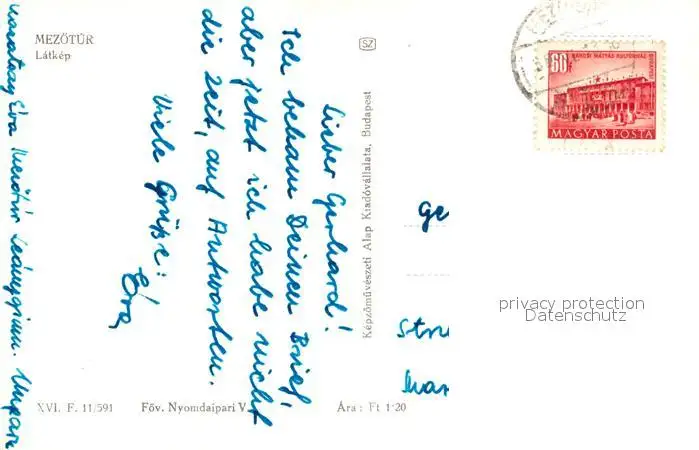 MEZŐTÚR
Látkép
SZ
60f
RÁKOSI MÁTYÁS KULTÚRHÁZ
MAGYAR POSTA
Lieber Gerhard!
Ich bekam Deinen Brief,
aber jetzt ich habe nicht
die Zeit, auf Antworten.
Viele Grüße:
Éva
Éva Mezőtúr Leánygimn. Ungarn
Képzőművészeti Alap Kiadóvállalata, Budapest
Ge
Str
Mar
privacy protection
Datenschutz
XVI. F. 11/591 Főv. Nyomdaipari V. Ára: Ft 1·20